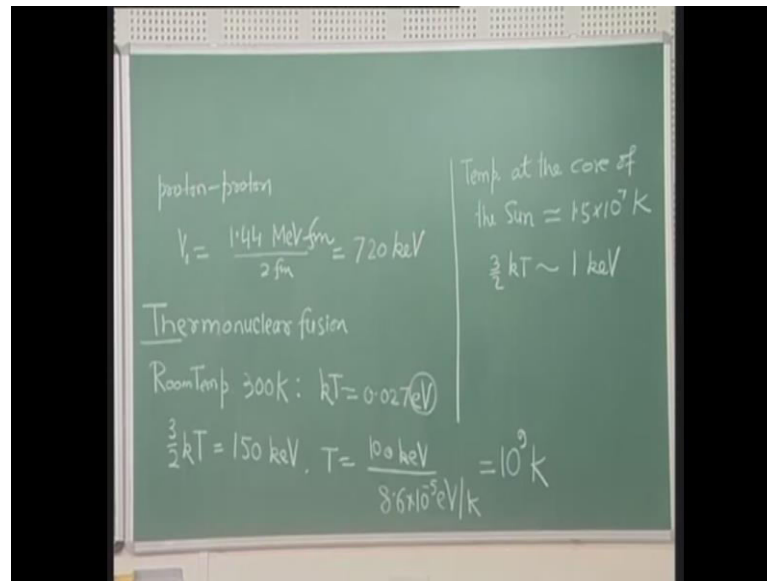 proton-proton
V₁ = 1.44 MeV fm / 2 fm = 720 keV
Thermonuclear fusion
Room Temp 300K : kT = 0.027 eV
3/2 kT = 150 keV. T = 100 keV / 8.6×10⁻⁵ eV/k = 10⁹ K
Temp at the core of
the Sun ≃ 1.5×10⁷ K
3/2 kT ~ 1 keV